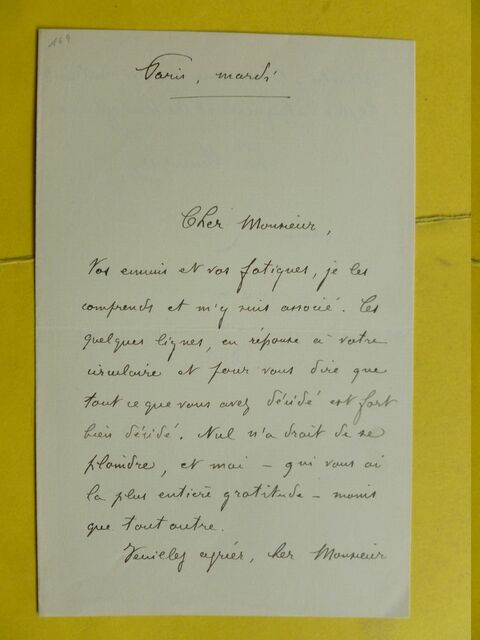 169
Paris, mardi
Cher Monsieur,
Vos ennuis et vos fatigues, je les
comprends et m'y suis associé. Ces
quelques lignes, en réponse à votre
circulaire et pour vous dire que
tout ce que vous avez décidé est fort
bien décidé. Nul n'a droit de se
plaindre, et moi – qui vous ai
la plus entière gratitude – moins
que tout autre.
Veuillez agréer, cher Monsieur